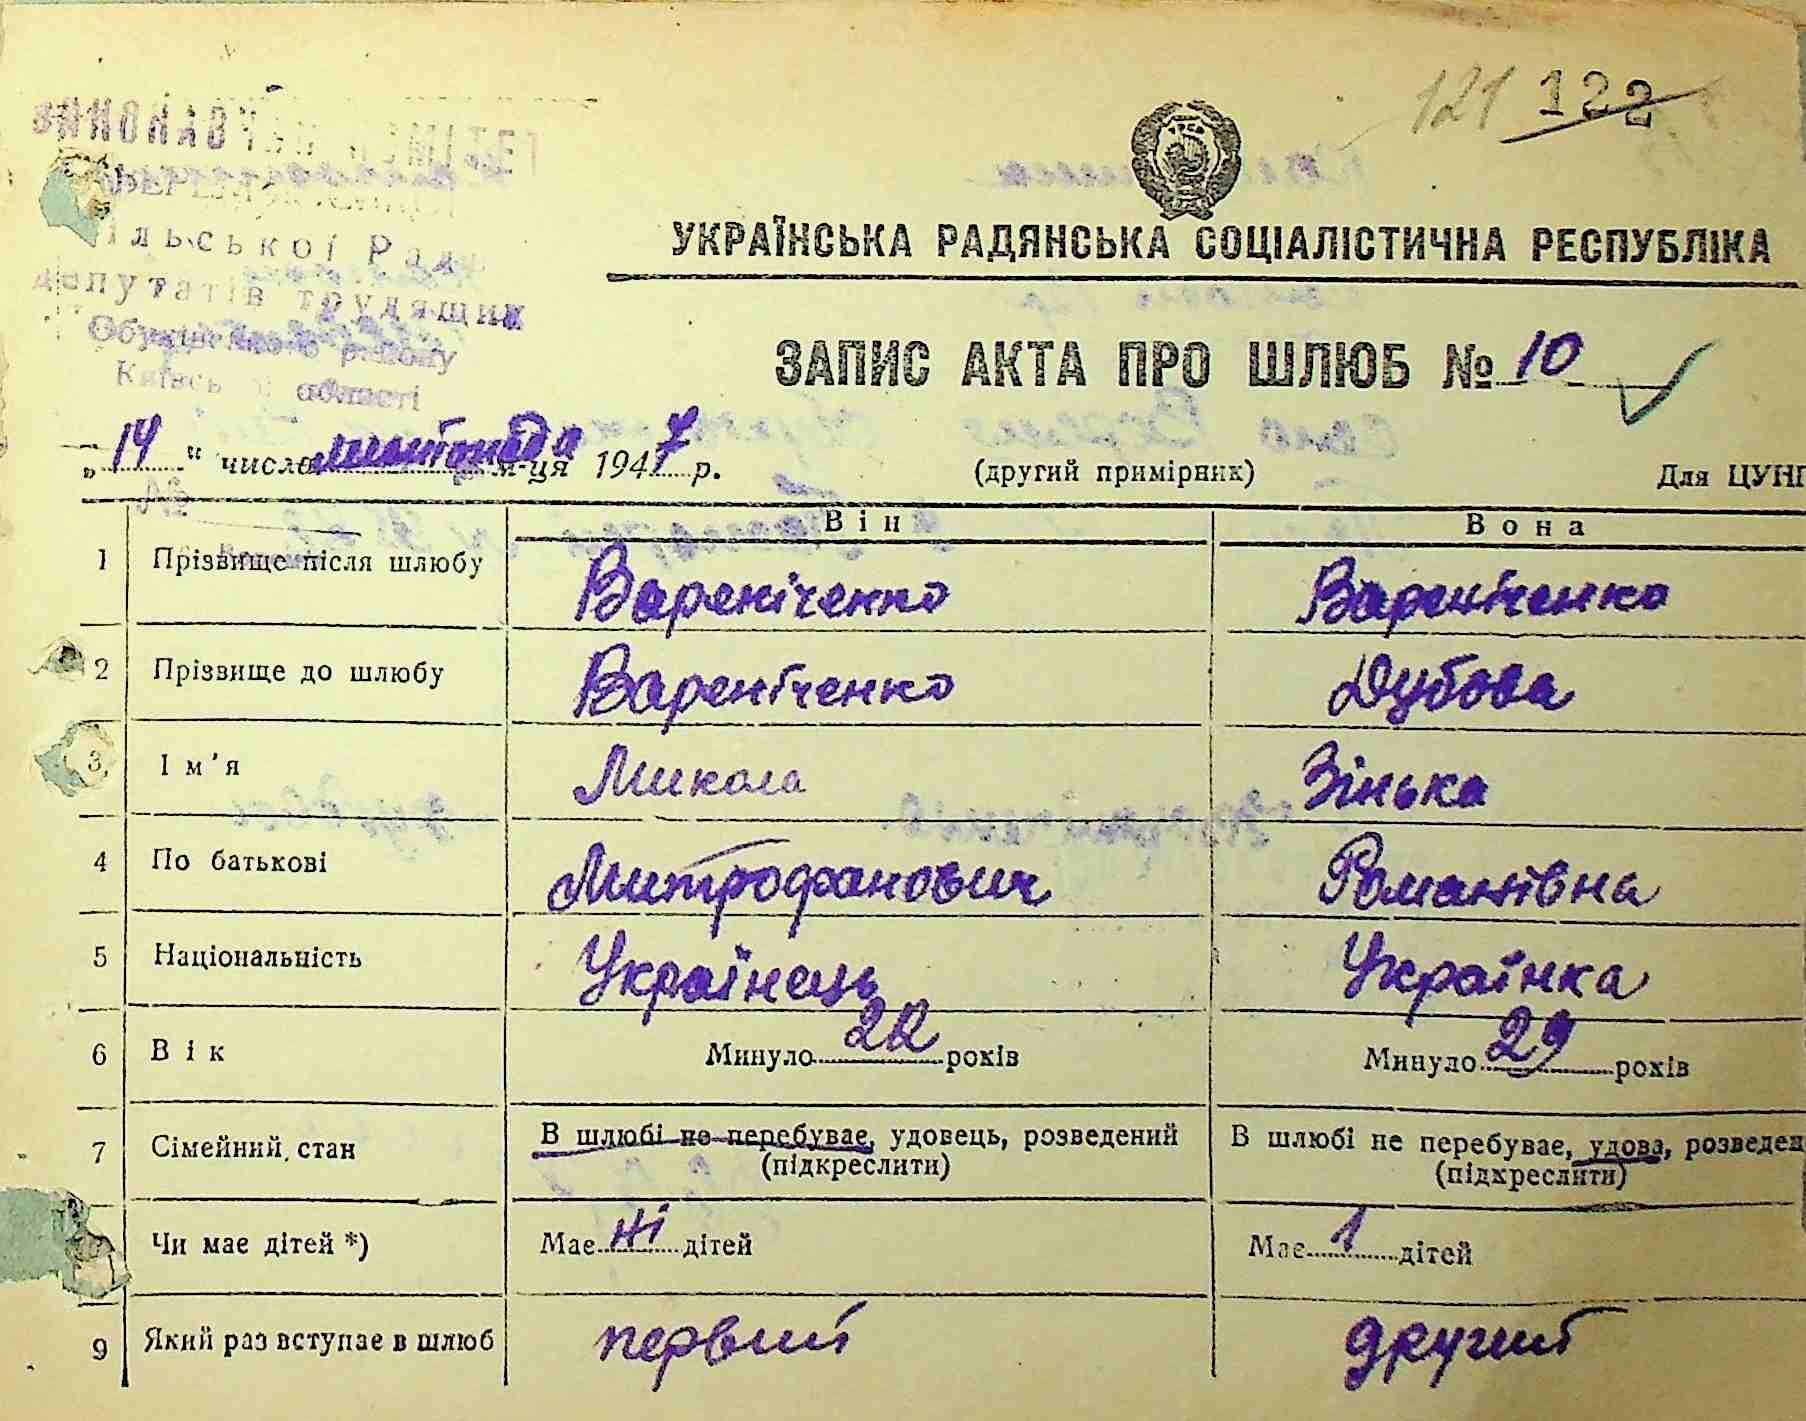 121 122
ільської Рад
депутатів трудящих
Обухівського району
області
УКРАЇНСЬКА РАДЯНСЬКА СОЦІАЛІСТИЧНА РЕСПУБЛІКА
ЗАПИС АКТА ПРО ШЛЮБ № 10
„14" число листопада м-ця 1947 р. (другий примірник) Для ЦУНГ
Він Вона
1 Прізвище після шлюбу Вареніченко Вареніченко
2 Прізвище до шлюбу Вареніченко Дубова
3 Ім'я Микола Зінька
4 По батькові Митрофанович Романівна
5 Національність Українець Українка
6 Вік Минуло 22 років Минуло 29 років
7 Сімейний стан В шлюбі не перебуває, удовець, розведений В шлюбі не перебуває, удова, розведен
(підкреслити) (підкреслити)
Чи має дітей *) Має ні дітей Має 1 дітей
9 Який раз вступає в шлюб первий другий